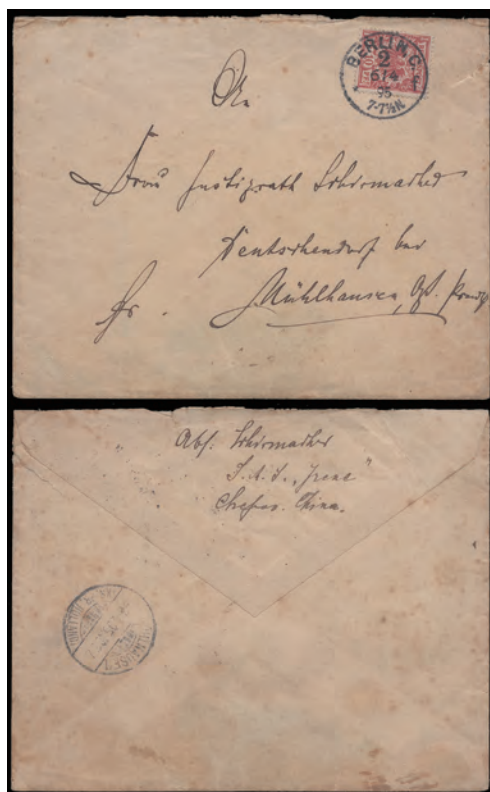 BERLIN, C.
2
6/4
95
7-7½N
An
Frau Justizrath Schirmacher
Deutschendorf bei
Mühlhausen, Ost. Preuß
fr.
Abs: Schirmacher
S.M.S. „Irene"
Chefoo. China.